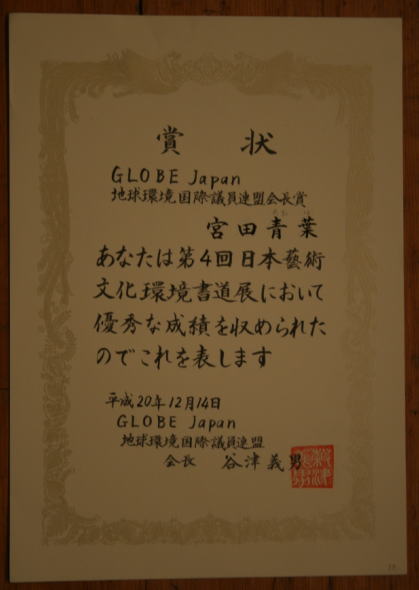 賞状
GLOBE Japan
地球環境国際議員連盟会長賞
宮田青葉
あなたは第4回日本藝術
文化環境書道展において
優秀な成績を収められた
のでこれを表します
平成20年12月14日
GLOBE Japan
地球環境国際議員連盟
会長 谷津義男